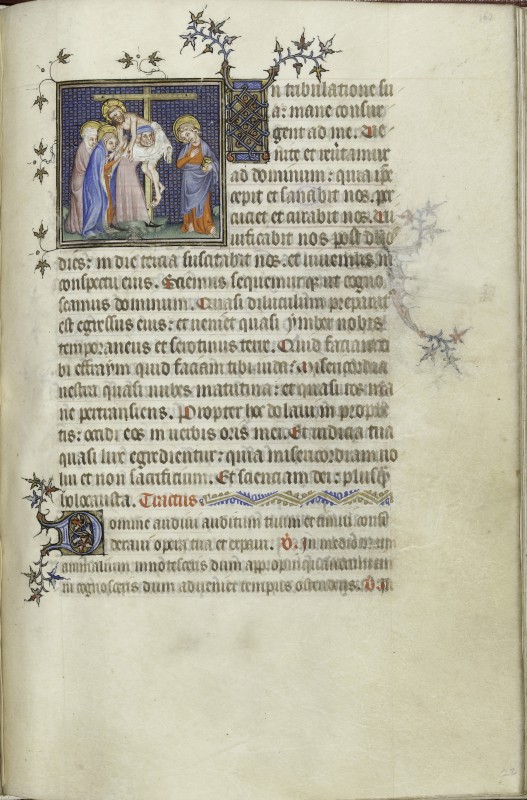 162
In tribulatione su
a: mane consur
gent ad me. Ve
nite et revertamur
ad dominum: quia ipse
cepit et sanabit nos. per
cuciet et curabit nos. vi
vificabit nos post duo
dies: in die tercia suscitabit nos. et vivemus in
conspectu eius. Sciemus sequemurque ut cogno
scamus dominum. Quasi diluculum preparatus
est egressus eius: et veniet quasi ymber nobis
temporaneus et serotinus terre. Quid faciam ti
bi effraym quid faciam tibi iuda: Misericordia
vestra quasi nubes matutina: et quasi ros ma
ne pertransiens. Propter hoc dolavi in prophe
tis: occidi eos in verbis oris mei. Et iudicia tua
quasi lux egredientur: quia misericordiam vo
lui et non sacrificium. Et scienciam dei: plusquam
holocausta. Tractus
Domine audivi auditum tuum et timui consi
deravi opera tua et expavi. V. In medio duorum
animalium innotesceris dum appropinquaverint an
ni cognosceris dum advenerit tempus ostenderis. V. In